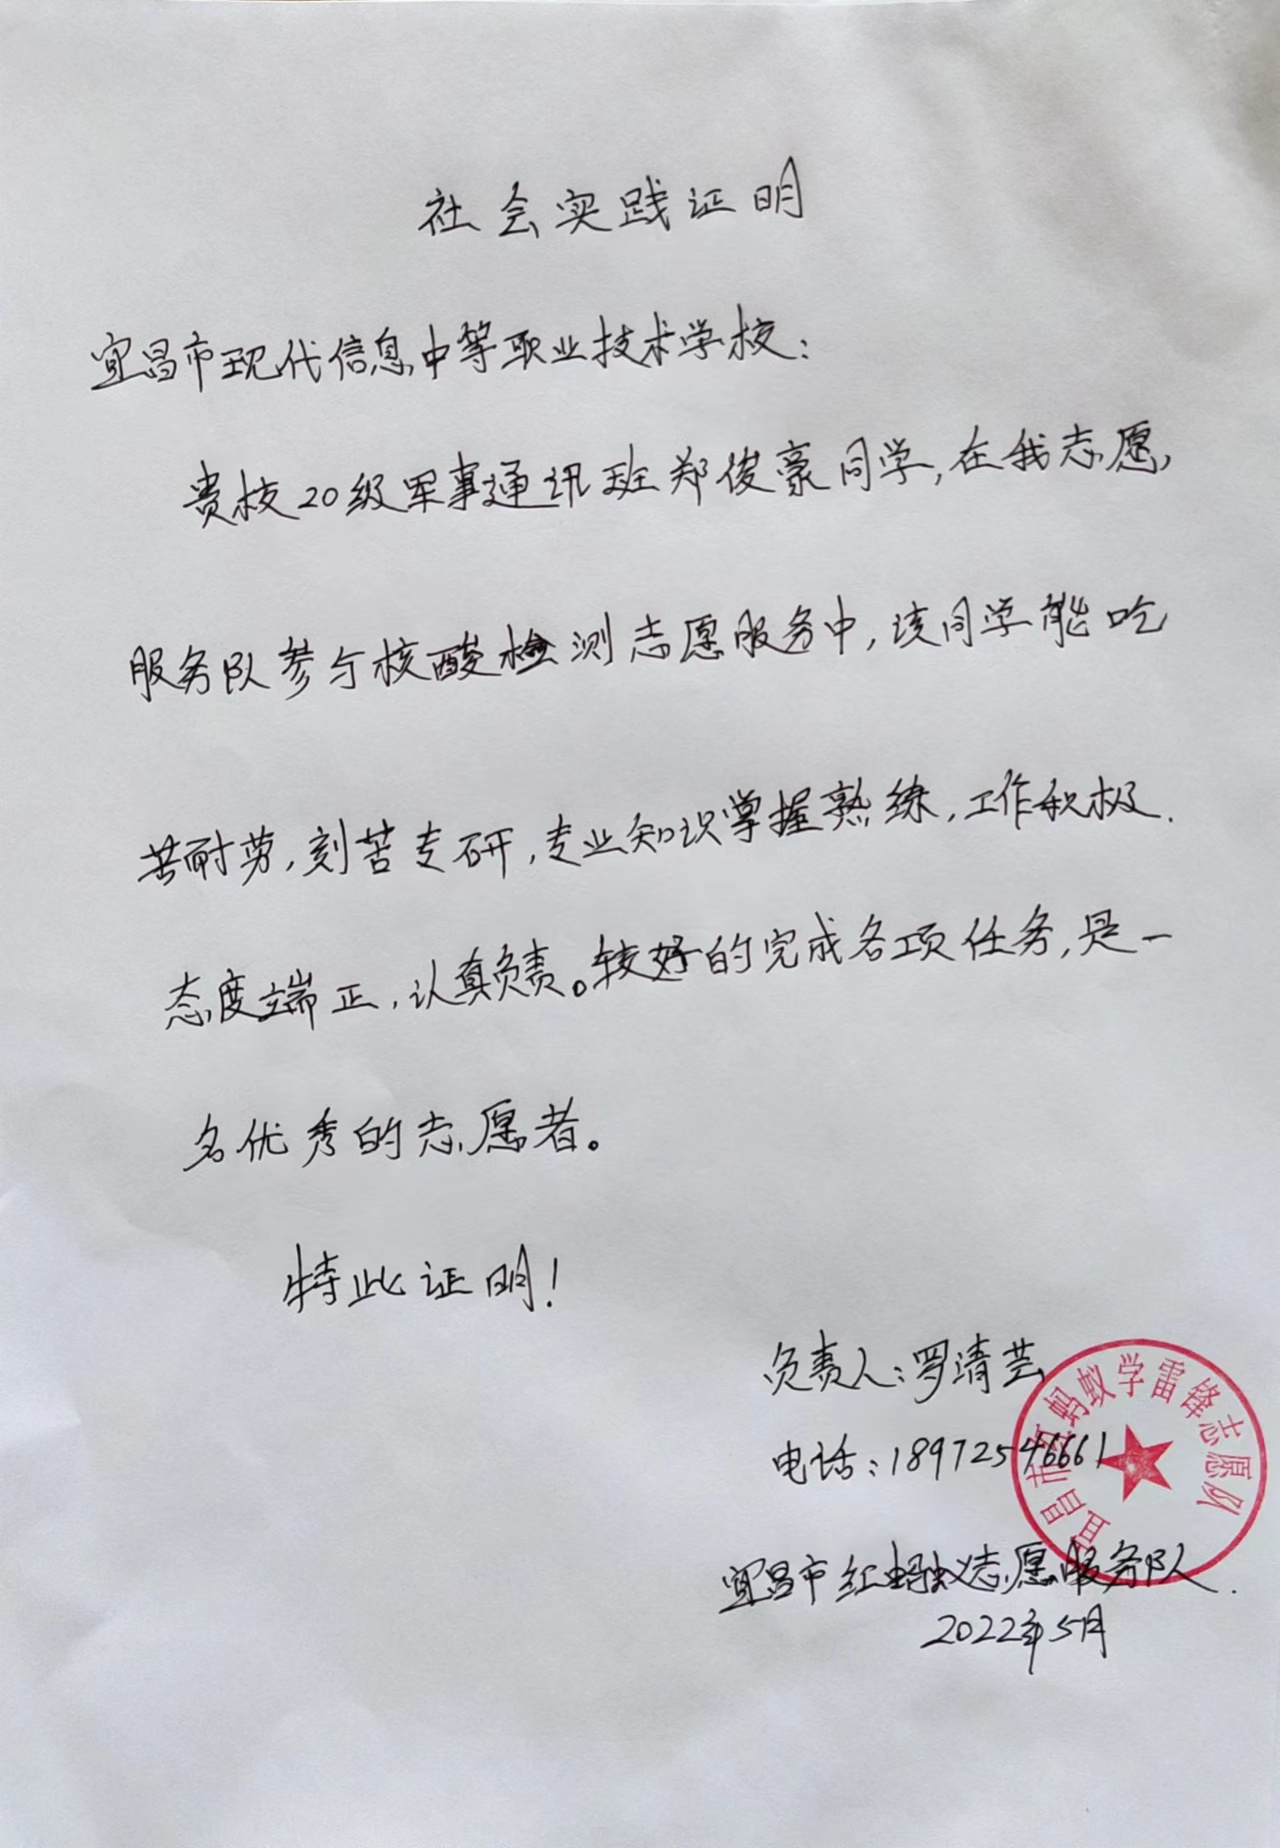 社会实践证明
宜昌市现代信息中等职业技术学校：
贵校20级军事通讯班郑俊豪同学，在我志愿
服务队参与核酸检测志愿服务中，该同学能吃
苦耐劳，刻苦专研，专业知识掌握熟练，工作积极.
态度端正，认真负责。较好的完成各项任务，是一
名优秀的志愿者。
特此证明！
负责人：罗清芸
电话：18972546661
宜昌市红蚂蚁志愿服务队.
2022年5月
宜昌市红蚂蚁学雷锋志愿队